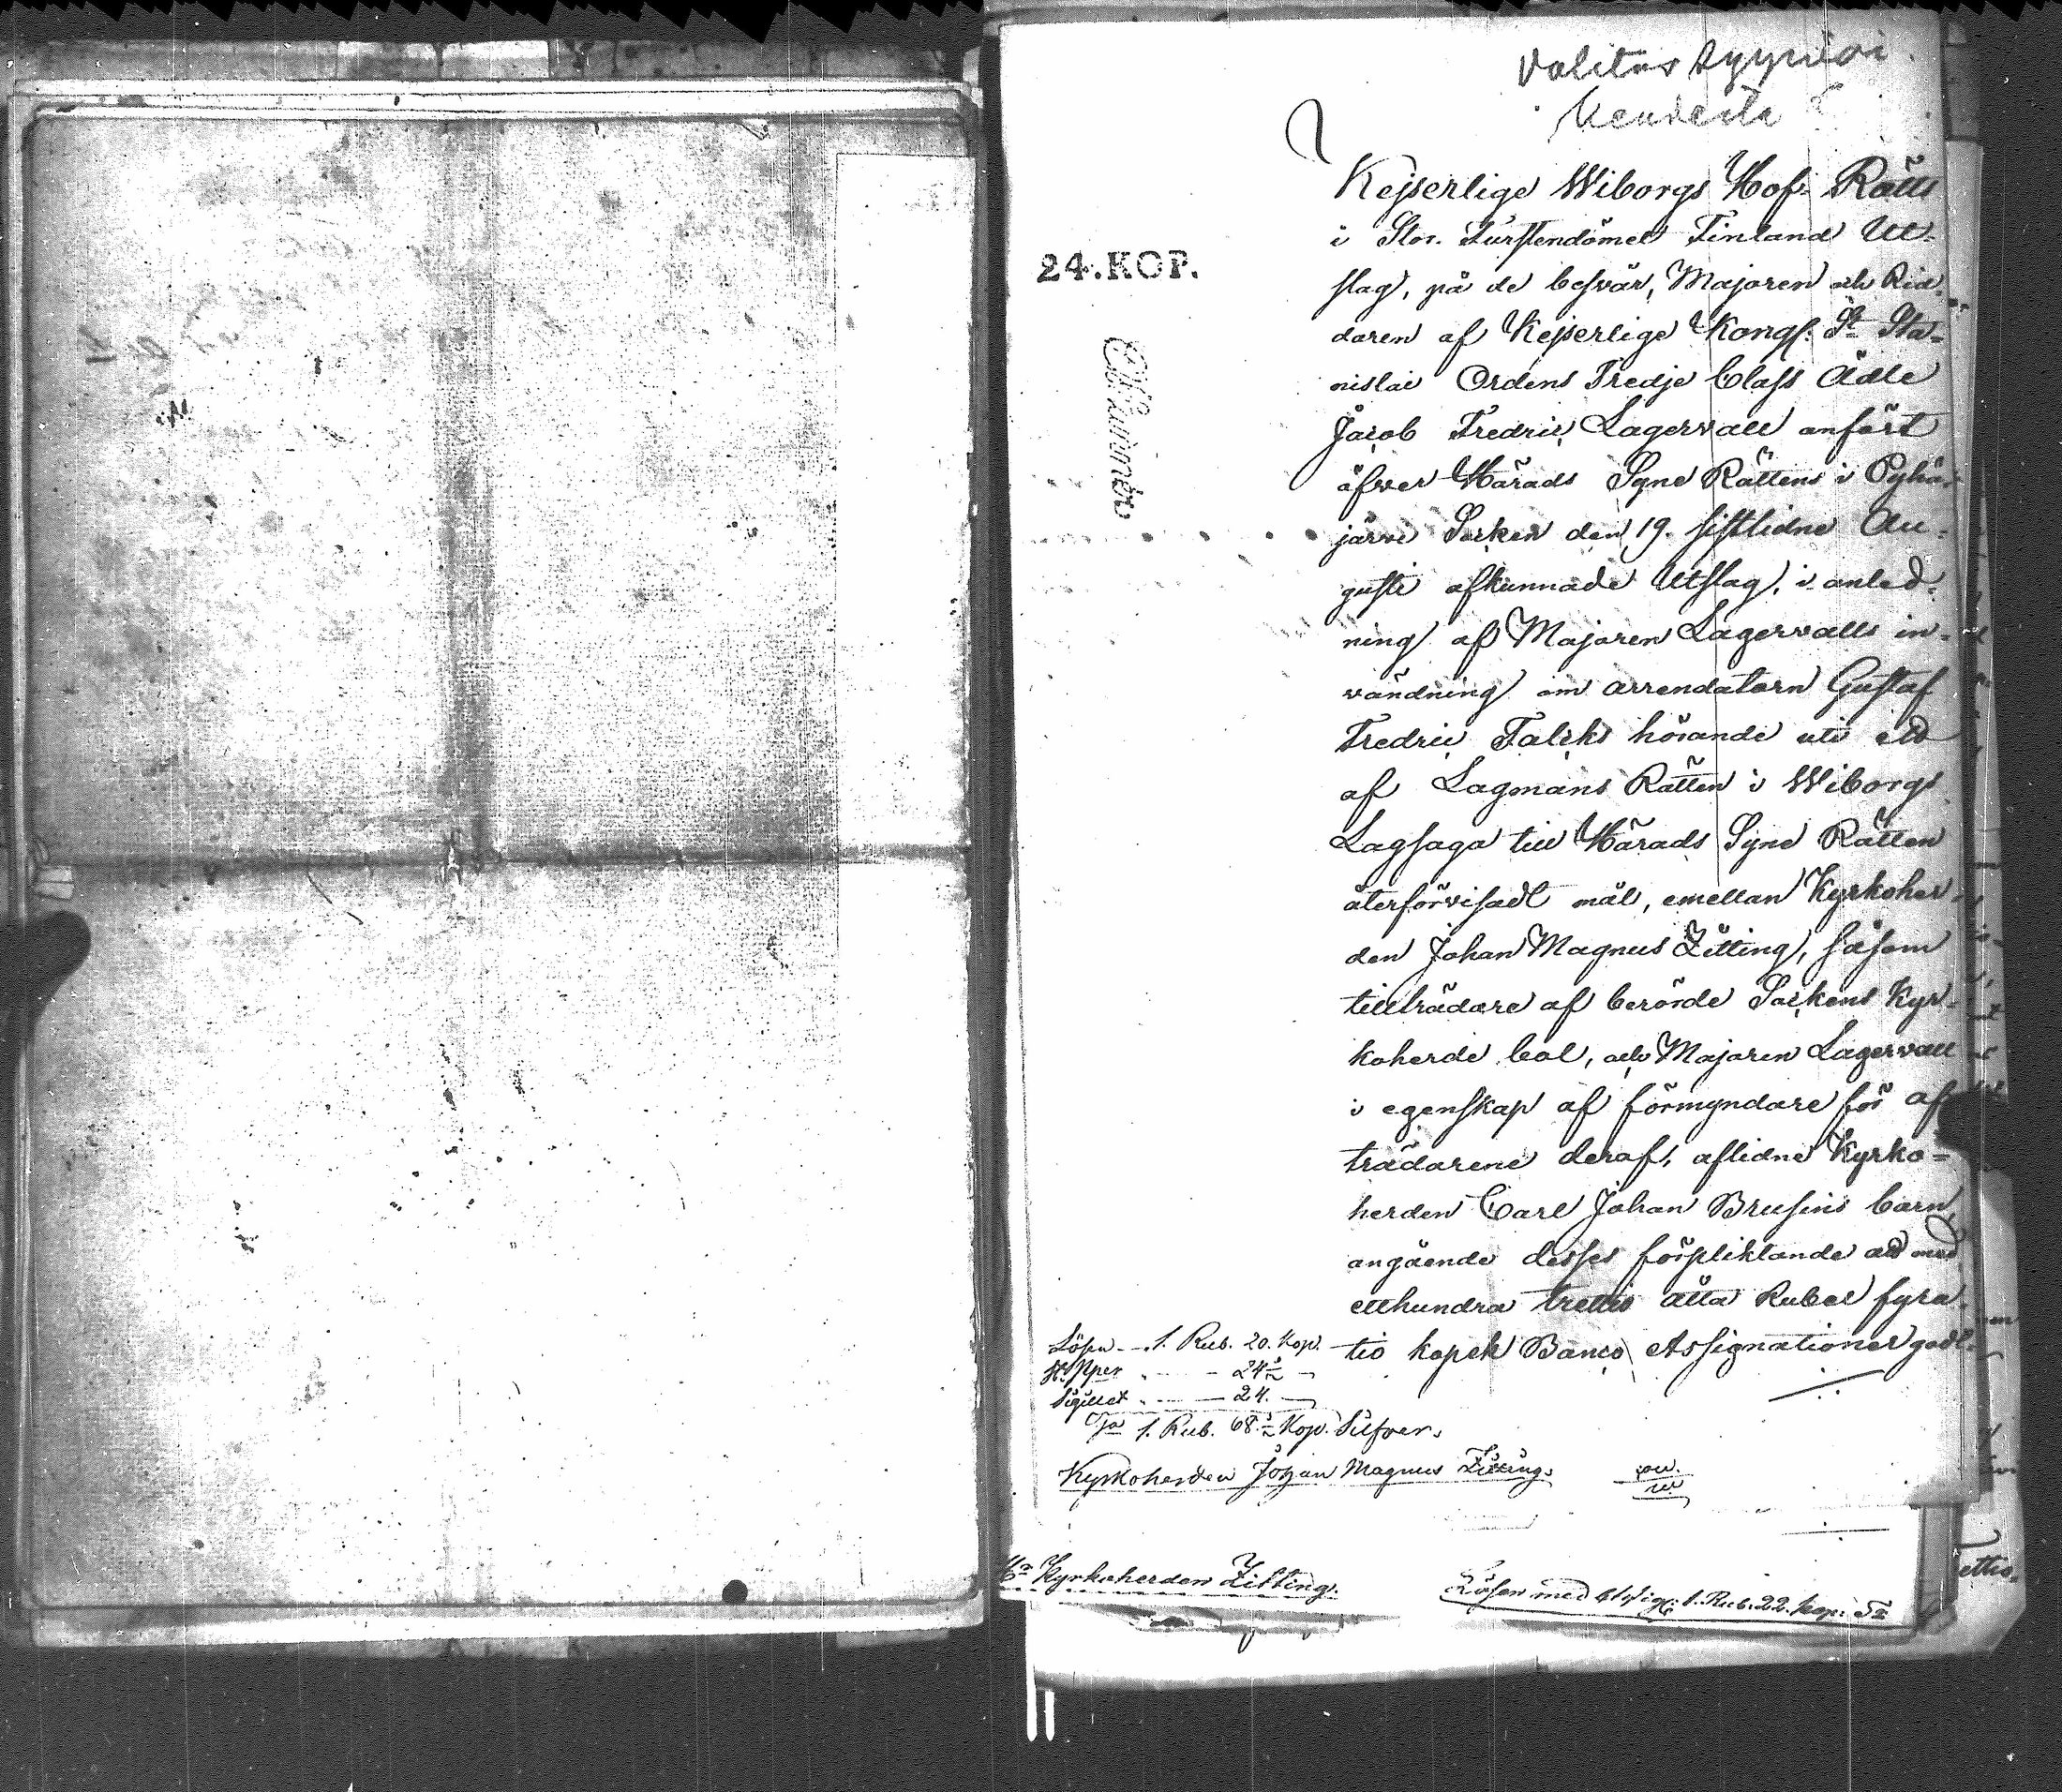 Valitus syynioi
24.KOP.
Kejserlige Wiborgs Hof-Rätts
i Stor-Furstendömet Finland Ut-
slag, på de besvär, Majoren och Rid-
daren af Kejserlige Kongl. St Sta-
nislai Ordens Tredje Class Ädle
Jacob Fredric Lagervall anfört
öfwer Härads Syne Rättens i Pyhä-
järvi Socken den 19. sistlidne Au-
gusti afkunnade Utslag, i anled-
ning af Majoren Lagervalls in-
vändning om arrendatorn Gustaf
Fredric Falcks hörande uti ett
af Lagmans Rätten i Wiborgs
Lagsaga till Härads Syne Rätten
återförvisadt mål, emellan Kyrkoher-
den Johan Magnus Zitting, såsom
tillträdare af berörde Sockens Kyr-
koherde bol, och Majoren Lagervall
i egenskap af förmyndare för af-
trädarene deraf, aflidne Kyrko-
herden Carl Johan Brusins barn,
angående desses förpliktande att med
etthundra trettio åtta Rubel fyra-
tio kopek Banco Assignationer godt-
Lösen 1. Rub. 20. Kop.
24 1/2
Sigillet 24.
1. Rub. 68 1/2 Kop. Silfver.
Kyrkoherden Johan Magnus Zitting.
Kyrkoherden Zitting.
Lösen med 1. Rub. 22. kop. Sr